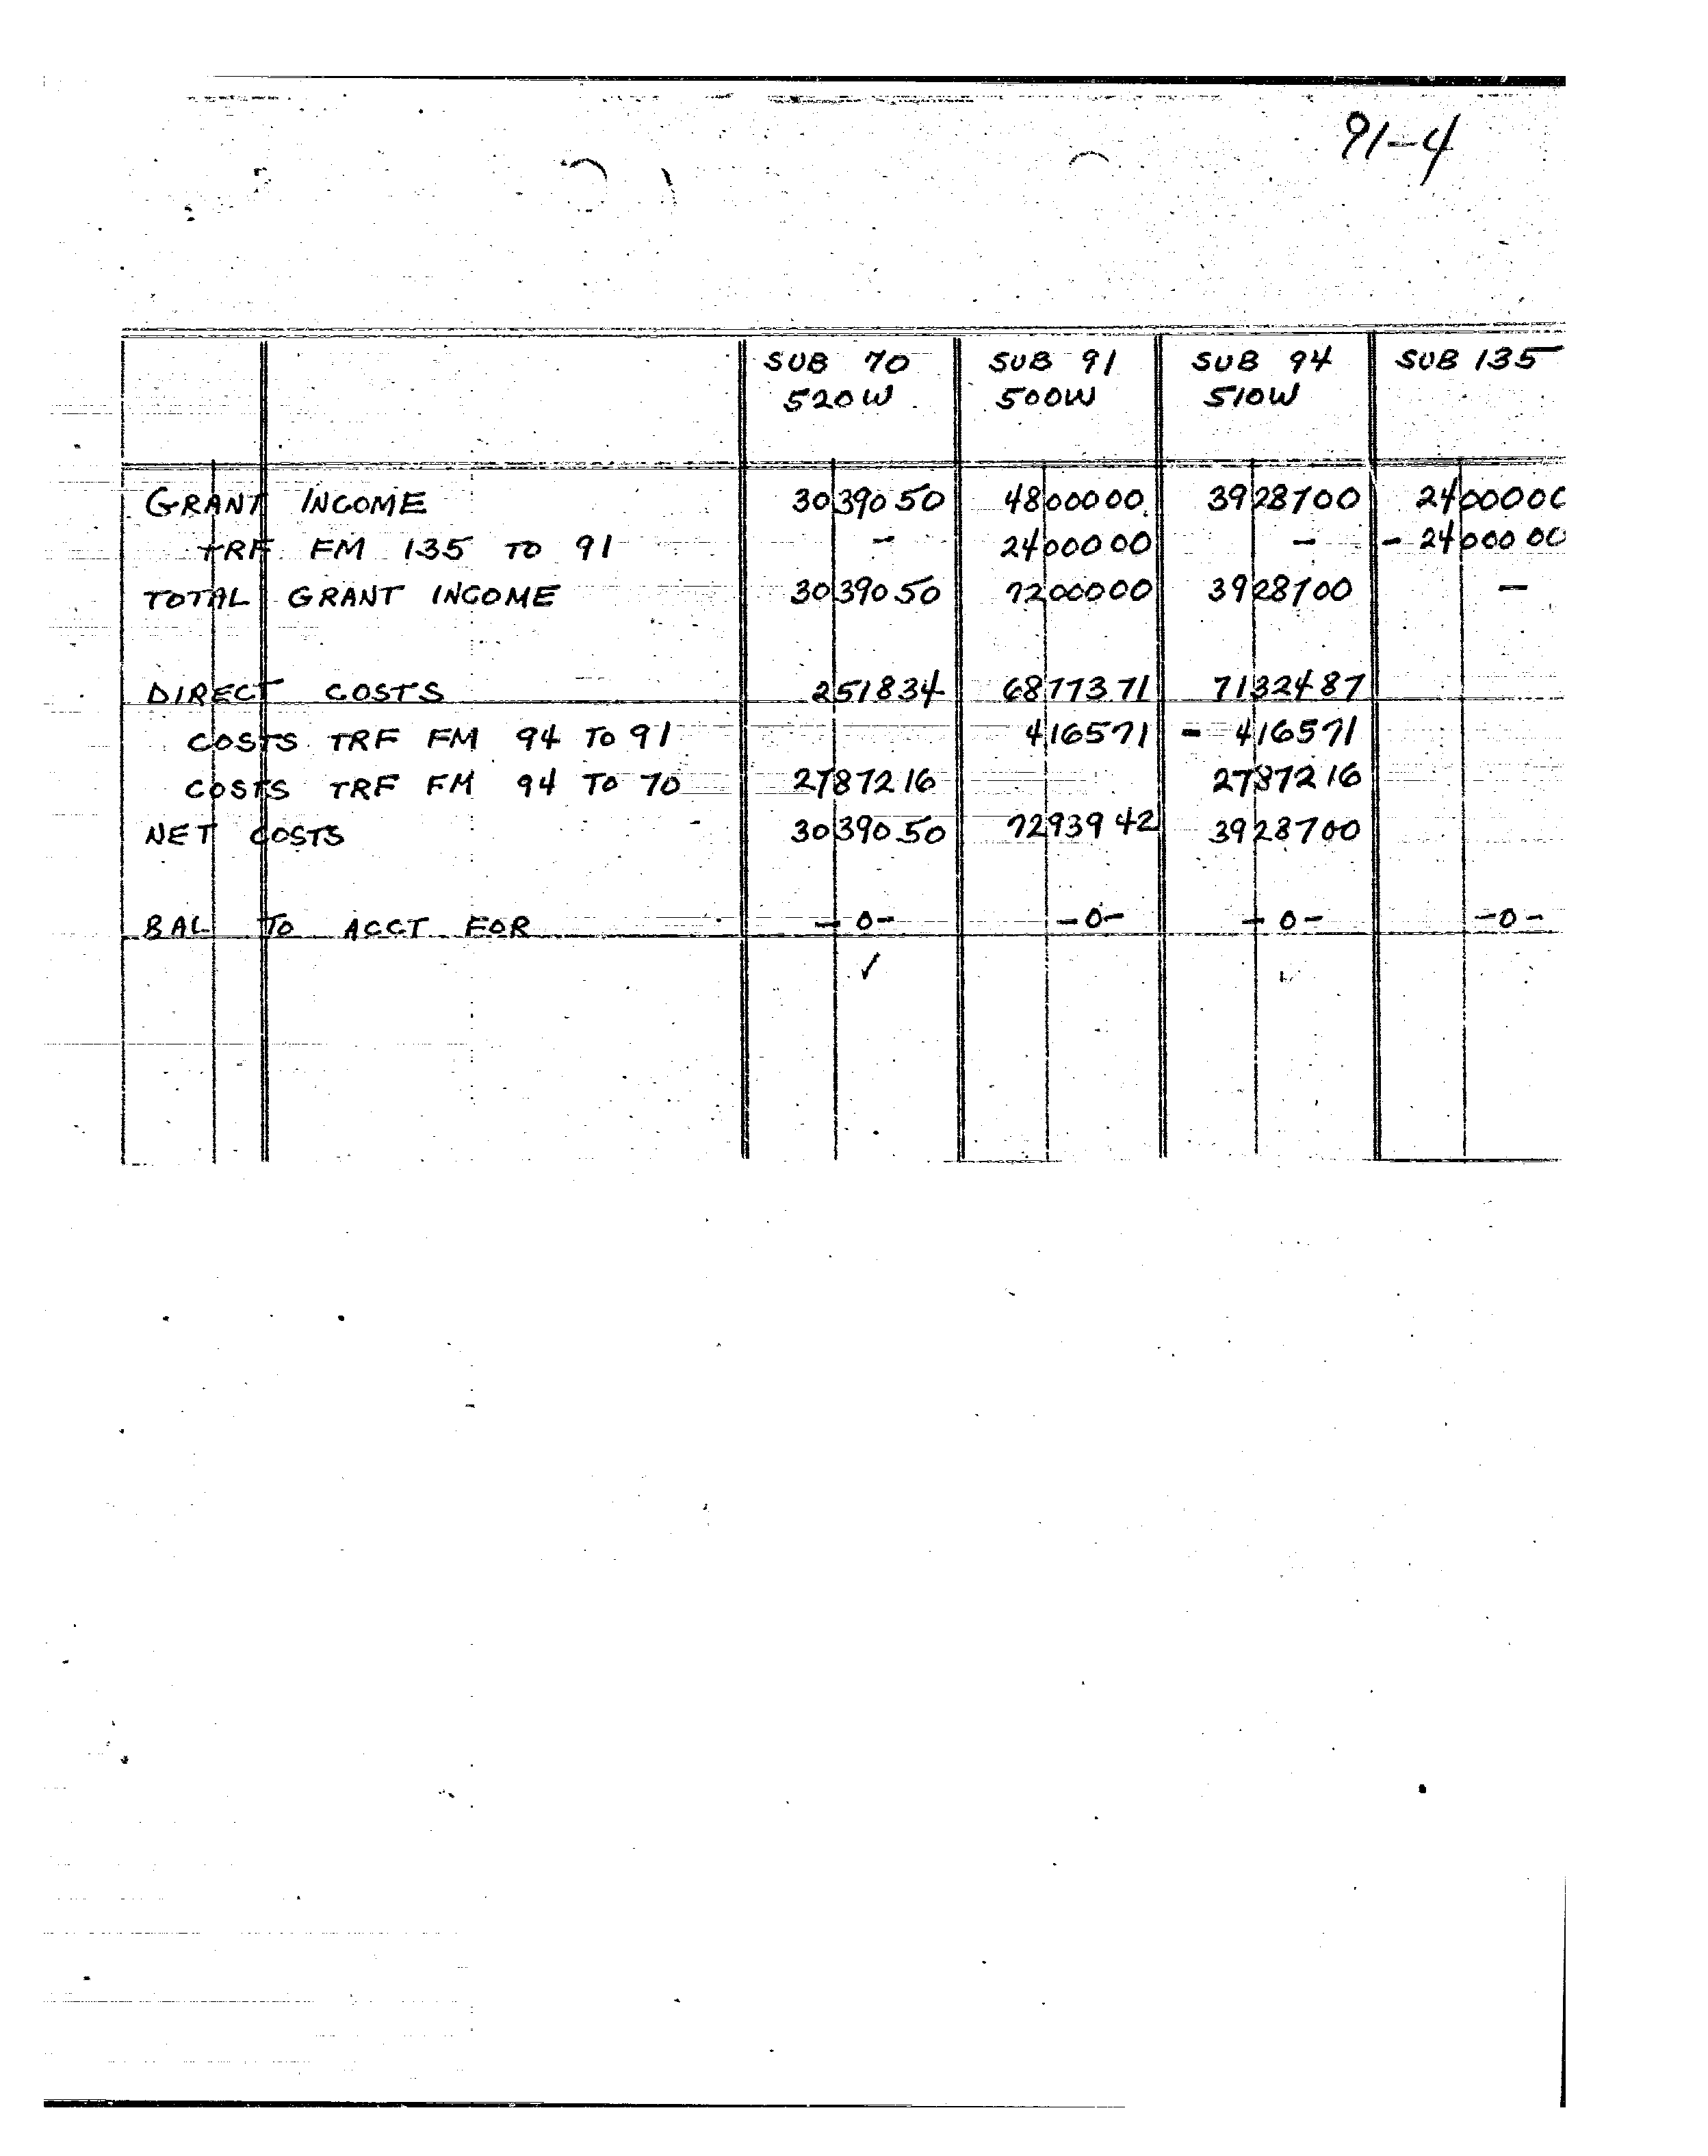 91-4
SUB 70 SUB 91 SUB 94 SUB 135
520W 500W 510W
GRANT INCOME 3039050 4800000 3928700 2400000
TRF FM 135 TO 91 - 2400000 - - 2400000
TOTAL GRANT INCOME 3039050 7200000 3928700 -
DIRECT COSTS 251834 6877371 7132487
COSTS TRF FM 94 TO 91 416571 - 416571
COSTS TRF FM 94 TO 70 2787216 2787216
NET COSTS 3039050 7293942 3928700
BAL TO ACCT FOR -0- -0- -0- -0-